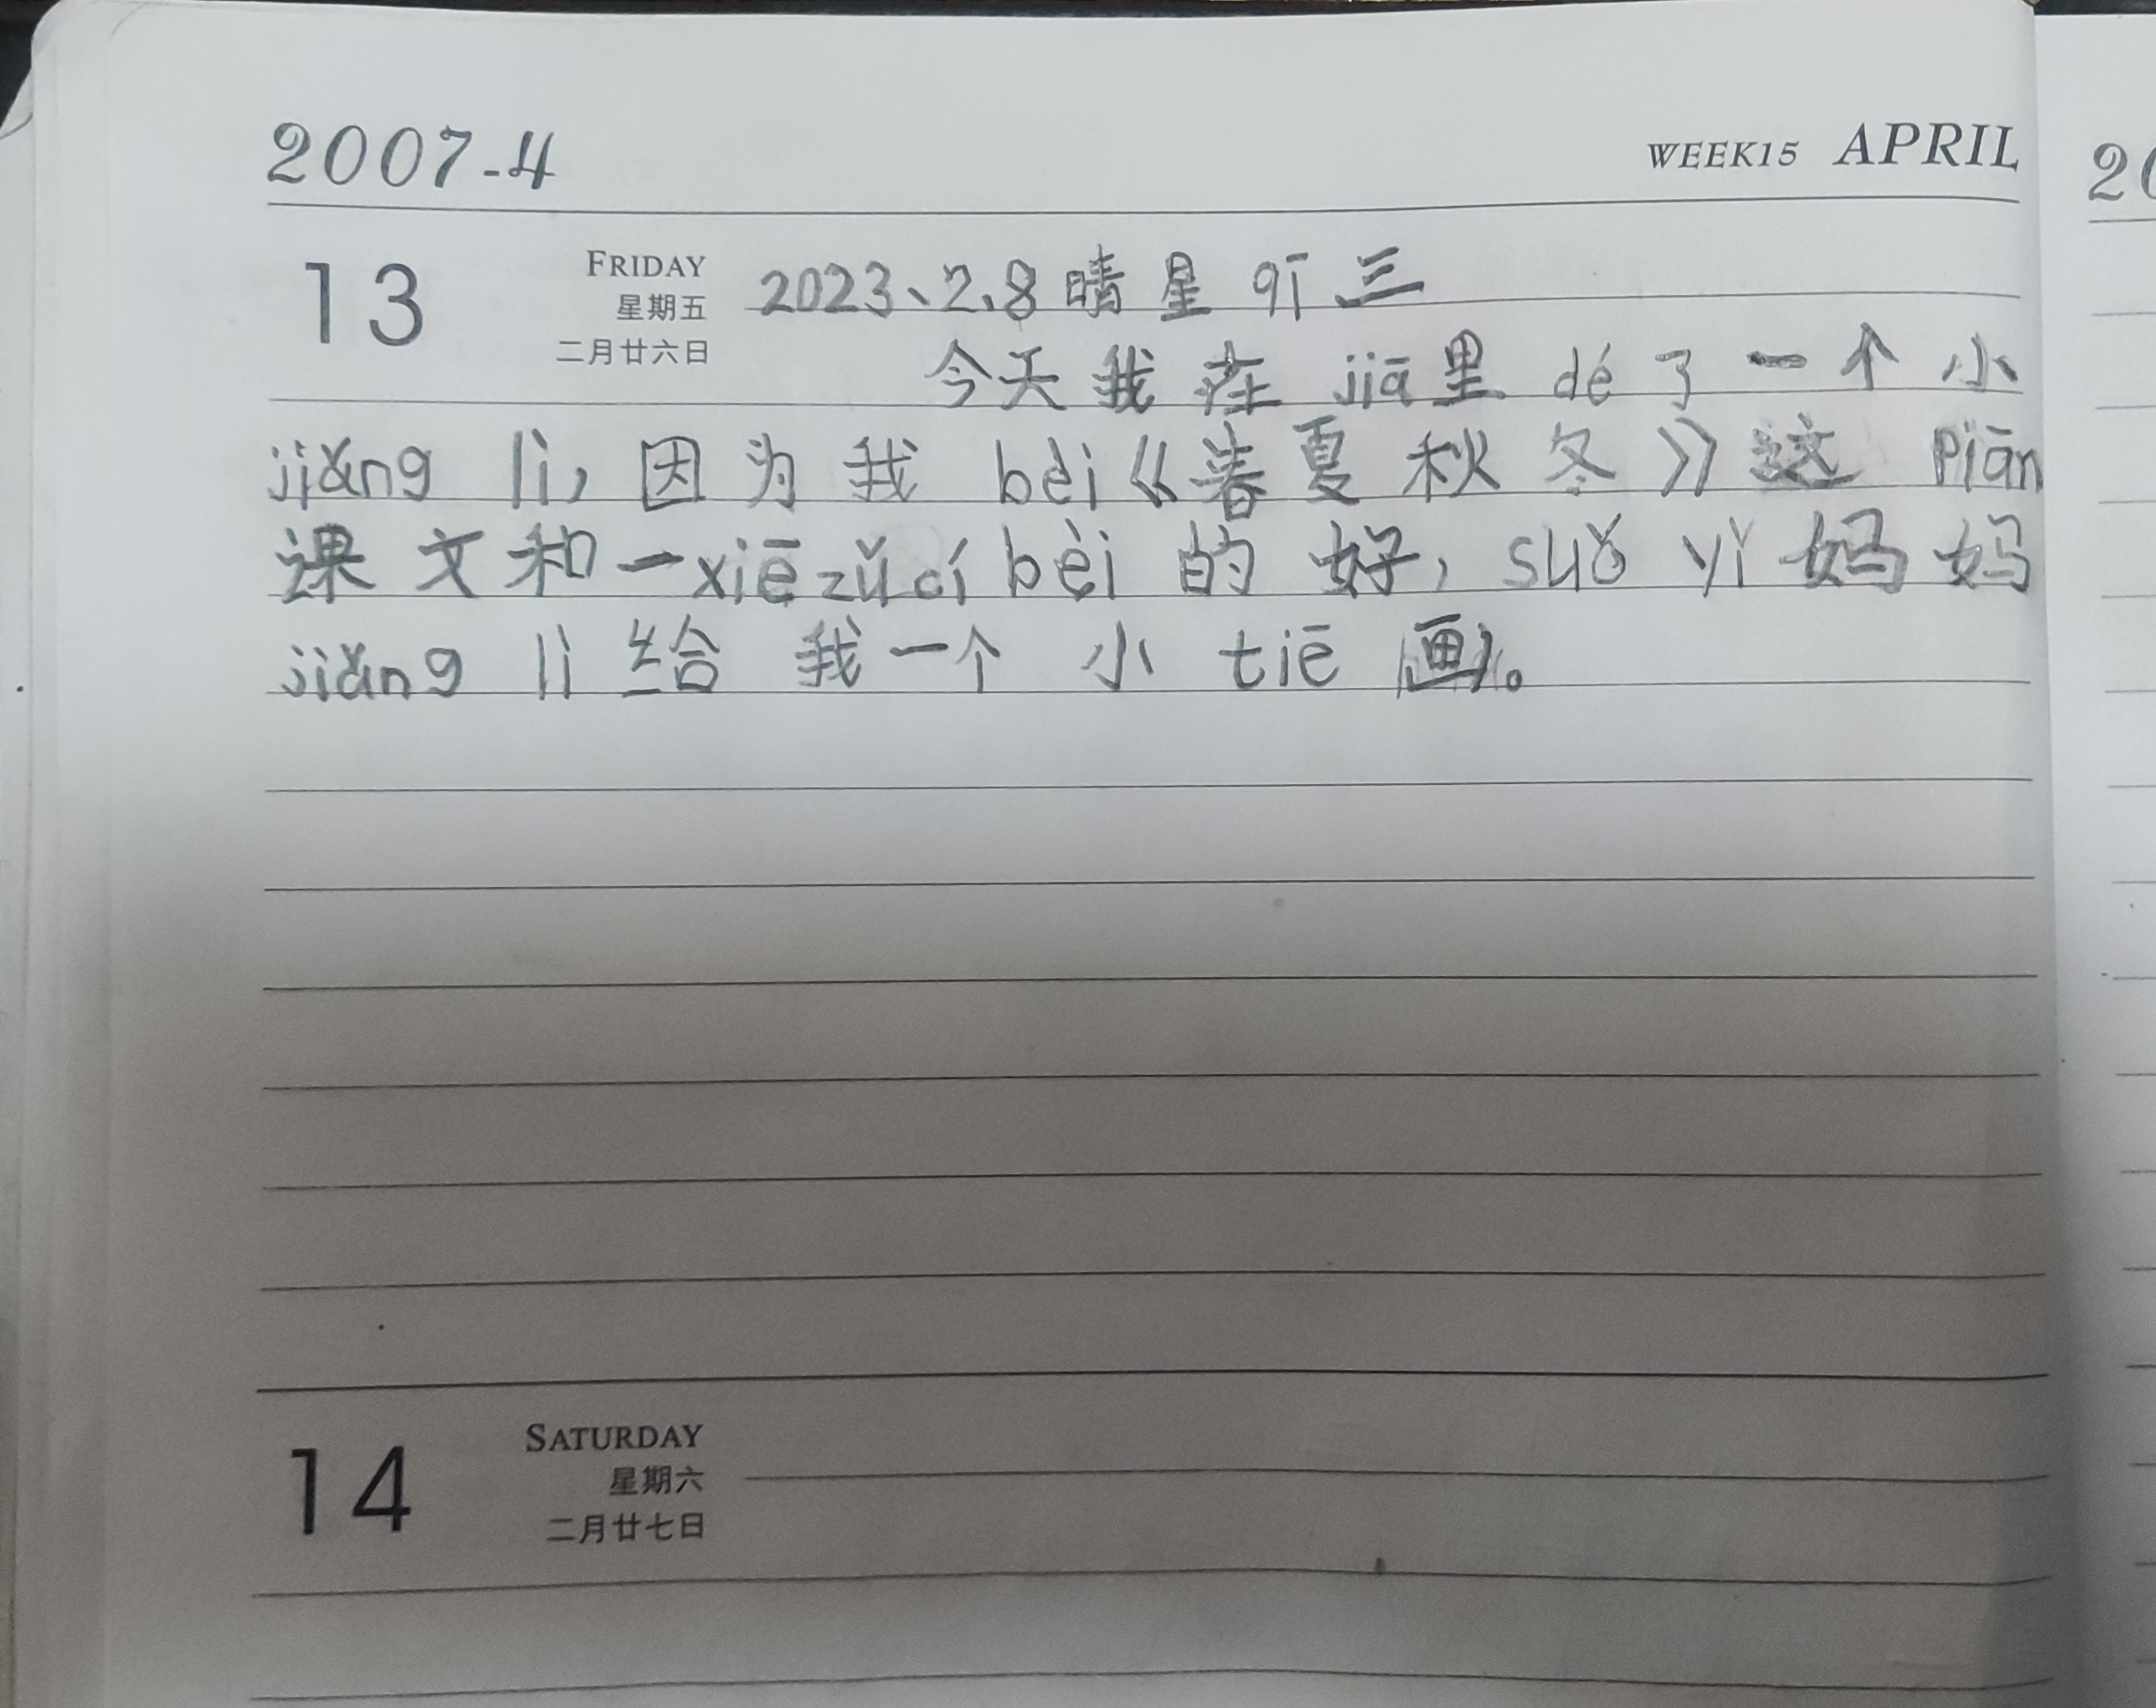 2007-4 WEEK15 APRIL 20
13 FRIDAY 2023、2.8 晴 星 qī 三
星期五
二月廿六日
今天 我 在 jiā 里 dé 了 一 个 小
jiǎng lì, 因 为 我 bèi 《春 夏 秋 冬》 这 piān
课 文 和 一 xiē zǔ cí bèi 的 好, suǒ yǐ 妈 妈
jiǎng lì 给 我 一 个 小 tiē 画。
14 SATURDAY
星期六
二月廿七日